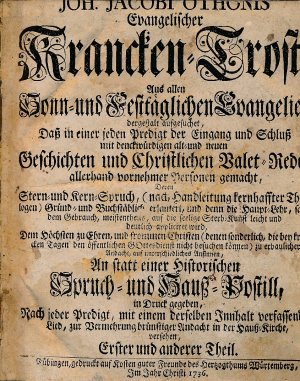 JOH. JACOBI OTHONIS
Evangelischer
Krancken-Trost
Aus allen
Sonn- und Festtäglichen Evangelie
dergestalt aufgesuchet,
Daß in einer jeden Predigt der Eingang und Schluß
mit denckwürdigen alt- und neuen
Geschichten und Christlichen Valet-Rede
allerhand vornehmer Personen gemacht,
Deren
Stern- und Kern-Spruch, (nach Handleitung kernhaffter Theo
logen) Gründ- und Buchstäblich erläutert, und denn die Haupt-Lehr,
dem Gebrauch, meistentheils, auf die seelige Sterb-Kunst leicht und
deutlich appliciret wird,
Dem Höchsten zu Ehren, und frommen Christen (denen sonderlich, die bey
cken Tagen den öffentlichen GOttesdienst nicht besuchen können) zu erbauliche
Andacht, auf unterschiedliches Ansinnen,
An statt einer Historischen
Spruch- und Hauß-Postill,
in Druck gegeben,
Nach jeder Predigt, mit einem derselben Innhalt verfassten
Lied, zur Vermehrung brünstiger Andacht in der Hauß-Kirche,
versehen,
Erster und anderer Theil.
Tübingen, gedruckt auf Kosten guter Freunde des Herzogthums Würtemberg,
Im Jahr Christi 1736